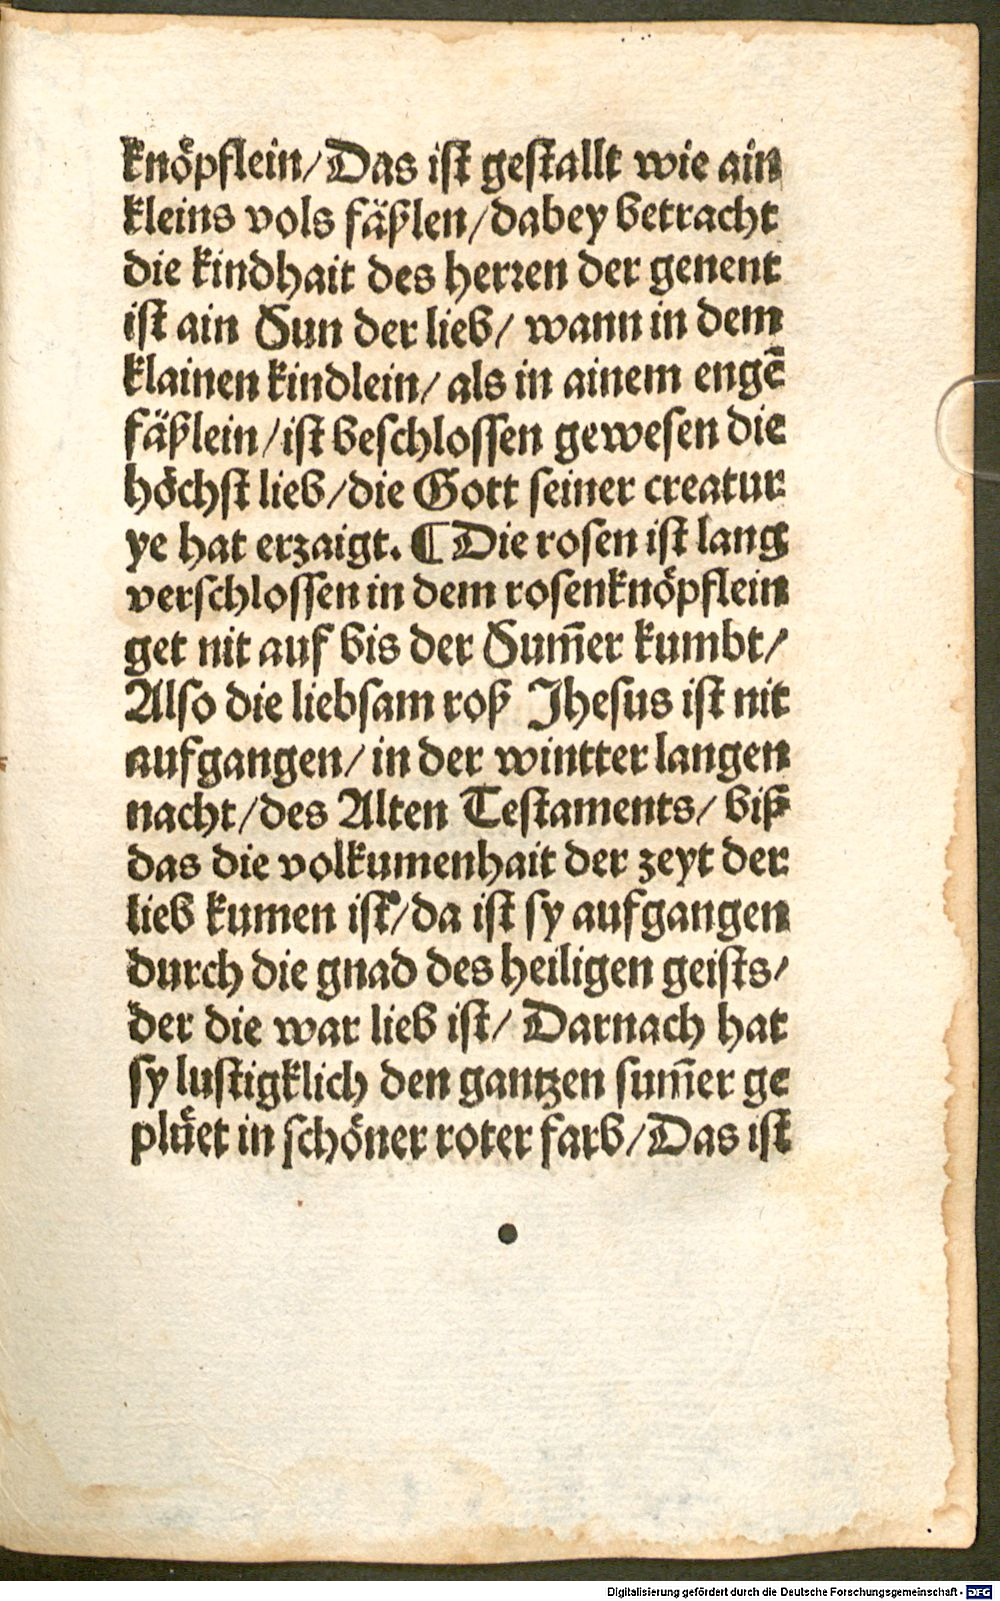 knöpflein/Das ist gestallt wie ain
kleins vols fäßlen/dabey betracht
die kindhait des herren der genent
ist ain Sun der lieb/ wann in dem
klainen kindlein/ als in ainem engē
fäßlein/ist beschlossen gewesen die
höchst lieb/die Gott seiner creatur
ye hat erzaigt. ¶ Die rosen ist lang
verschlossen in dem rosenknöpflein
get nit auf bis der Sum̄er kumbt/
Also die liebsam roß Jhesus ist nit
aufgangen/ in der wintter langen
nacht/des Alten Testaments/ biß
das die volkumenhait der zeyt der
lieb kumen ist/da ist sy aufgangen
durch die gnad des heiligen geists/
der die war lieb ist/ Darnach hat
sy lustigklich den gantzen sum̄er ge
plüet in schöner roter farb/Das ist
Digitalisierung gefördert durch die Deutsche Forschungsgemeinschaft - DFG